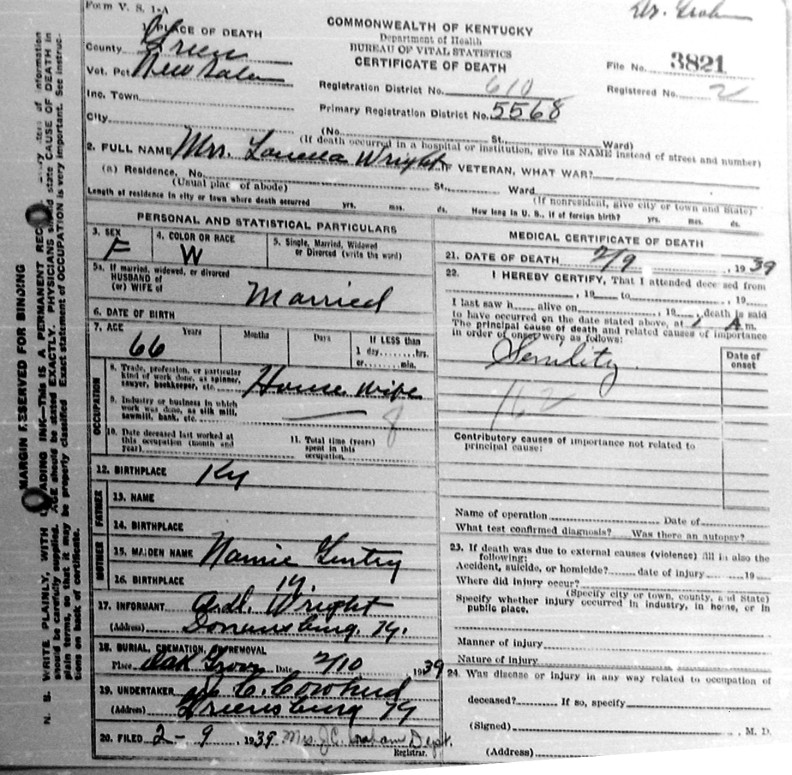 Form V. S. 1-A
Dr. Graham
COMMONWEALTH OF KENTUCKY
Department of Health
BUREAU OF VITAL STATISTICS
CERTIFICATE OF DEATH
1. PLACE OF DEATH
County Green
Vot. Pct. New Salem
Inc. Town
City
File No. 3821
Registration District No. 610
Registered No. 2
Primary Registration District No. 5568
(No. St. Ward)
(If death occurred in a hospital or institution, give its NAME instead of street and number)
2. FULL NAME Mrs. Wright IF VETERAN, WHAT WAR?
(a) Residence, No. St., Ward
(Usual place of abode) (If nonresident, give city or town and State)
Length of residence in city or town where death occurred yrs. mos. ds. How long in U. S., if of foreign birth? yrs. mos. ds.
PERSONAL AND STATISTICAL PARTICULARS
3. SEX F
4. COLOR OR RACE W
5. Single, Married, Widowed or Divorced (write the word)
5a. If married, widowed, or divorced
HUSBAND of
(or) WIFE of Married
6. DATE OF BIRTH
7. AGE 66 Years Months Days If LESS than
1 day, hrs.
or min.
OCCUPATION
8. Trade, profession, or particular
kind of work done, as spinner,
sawyer, bookkeeper, etc. House wife
9. Industry or business in which
work was done, as silk mill,
sawmill, bank, etc. 8
10. Date deceased last worked at
this occupation (month and
year)
11. Total time (years)
spent in this
occupation.
12. BIRTHPLACE Ky
FATHER
13. NAME
14. BIRTHPLACE
MOTHER
15. MAIDEN NAME Nannie Gentry
16. BIRTHPLACE Ky.
17. INFORMANT Wright
(Address) Ky.
18. BURIAL, CREMATION, REMOVAL
Place Oak Grove Date 2/10 1939
19. UNDERTAKER C. Cowherd
(Address) Greensburg Ky
20. FILED 2-9, 1939 Mrs. J.C. Graham Dept.
Registrar.
MEDICAL CERTIFICATE OF DEATH
21. DATE OF DEATH 2/9, 1939
22. I HEREBY CERTIFY, That I attended deceased from
, 19 to , 19
I last saw h alive on , 19 , death is said
to have occurred on the date stated above, at 1 A m.
The principal cause of death and related causes of importance
in order of onset were as follows:
Date of
onset
Senility
162
Contributory causes of importance not related to
principal cause:
Name of operation Date of
What test confirmed diagnosis? Was there an autopsy?
23. If death was due to external causes (violence) fill in also the
following:
Accident, suicide, or homicide? date of injury 19
Where did injury occur?
(Specify city or town, county, and State)
Specify whether injury occurred in industry, in home, or in
public place.
Manner of injury
Nature of injury
24. Was disease or injury in any way related to occupation of
deceased? If so, specify
(Signed) , M. D.
(Address)
MARGIN RESERVED FOR BINDING
N. B. WRITE PLAINLY, WITH UNFADING INK—THIS IS A PERMANENT RECORD. Every item of information
should be carefully supplied. AGE should be stated EXACTLY. PHYSICIANS should state CAUSE OF DEATH in
plain terms, so that it may be properly classified. Exact statement of OCCUPATION is very important. See instruc-
tions on back of certificate.